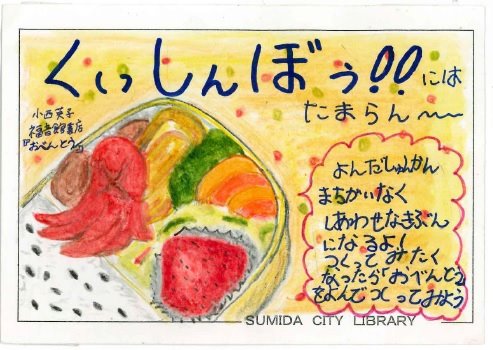 くいしんぼう!!には
たまらん〜〜
小西英子
福音館書店
『おべんとう』
よんだしゅんかん
まちがいなく
しあわせなきぶん
になるよ!
つくってみたく
なったら「おべんとう」
をよんでつくってみよう
SUMIDA CITY LIBRARY